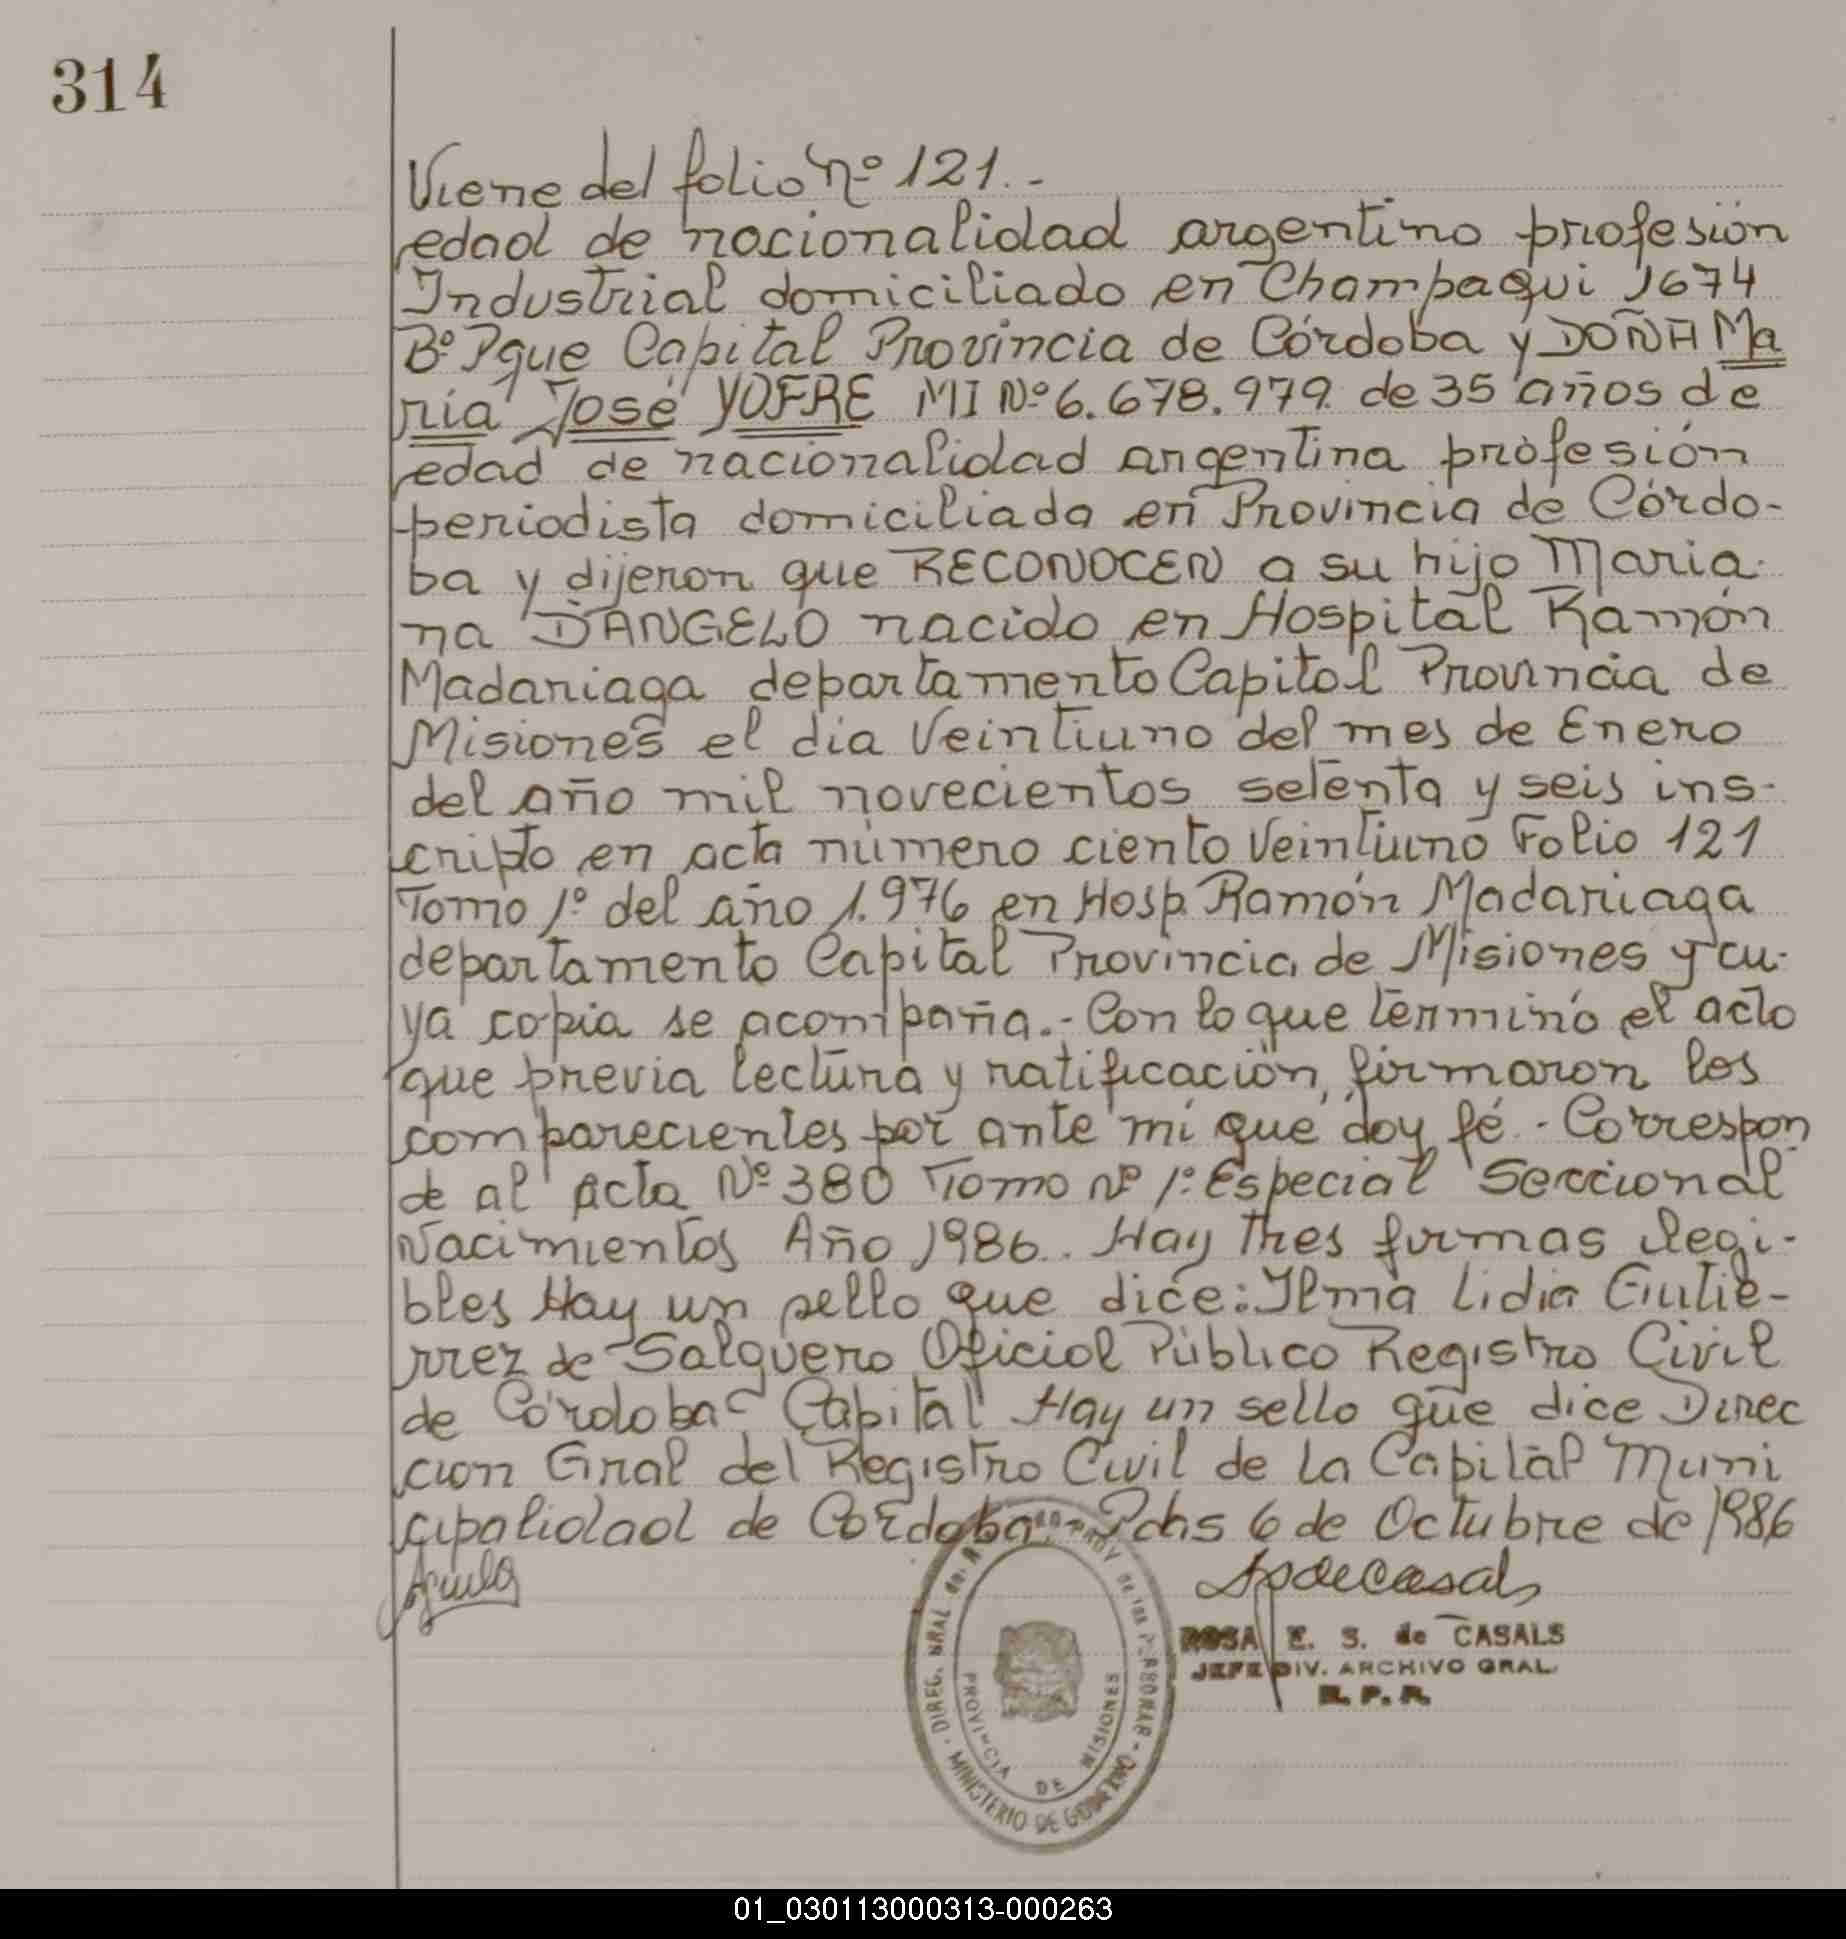 314
Viene del folio nº 121.-
edad de nacionalidad argentino profesión
Industrial domiciliado en Champaqui 1674
Bº Pque Capital Provincia de Córdoba y DOÑA Ma
ria José YOFRE MI Nº 6.678.979 de 35 años de
edad de nacionalidad argentina profesión
periodista domiciliada en Provincia de Córdo-
ba y dijeron que RECONOCEN a su hijo Maria-
na D'ANGELO nacido en Hospital Ramón
Madariaga departamento Capital Provincia de
Misiones el dia Veintiuno del mes de Enero
del año mil novecientos setenta y seis ins-
cripto en acta número ciento Veintiuno Folio 121
Tomo 1º del año 1.976 en Hosp. Ramón Madariaga
departamento Capital Provincia de Misiones y cu-
ya copia se acompaña.- Con lo que terminó el acto
que previa lectura y ratificación, firmaron los
comparecientes por ante mí que doy fé.- Correspon
de al acta Nº 380 Tomo nº 1º Especial Seccional
Nacimientos Año 1986.. Hay tres firmas ilegi-
bles Hay un sello que dice: Ilma Lidia Gutie-
rrez de Salguero Oficial Público Registro Civil
de Córdoba - Capital Hay un sello que dice Direc
cion Gral del Registro Civil de la Capital Muni
cipalidad de Cordoba.- Pdas 6 de Octubre de 1986
ROSA E. S. de CASALS
JEFE DIV. ARCHIVO GRAL.
R. P. P.
DIREC. GRAL de
de las PERSONAS
MINISTERIO DE GOBIERNO
PROVINCIA DE MISIONES
01_030113000313-000263